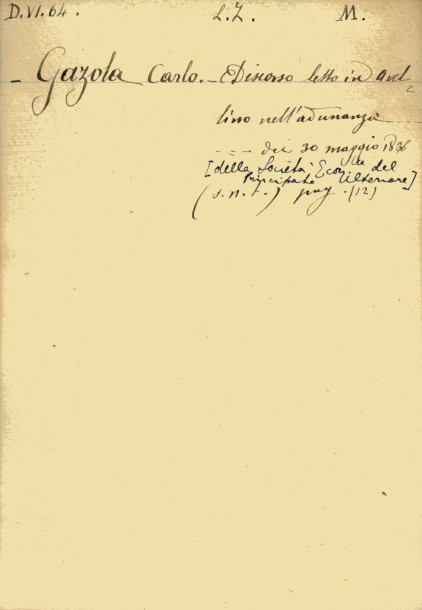 D.VI.64. L.Z. M.
- Gazola Carlo. - Discorso letto in Avel
lino nell'adunanza
dei 30 maggio 1836
[della Società Econ.ca del
Principato Ulteriore]
(s.n.t.) pag. (12)